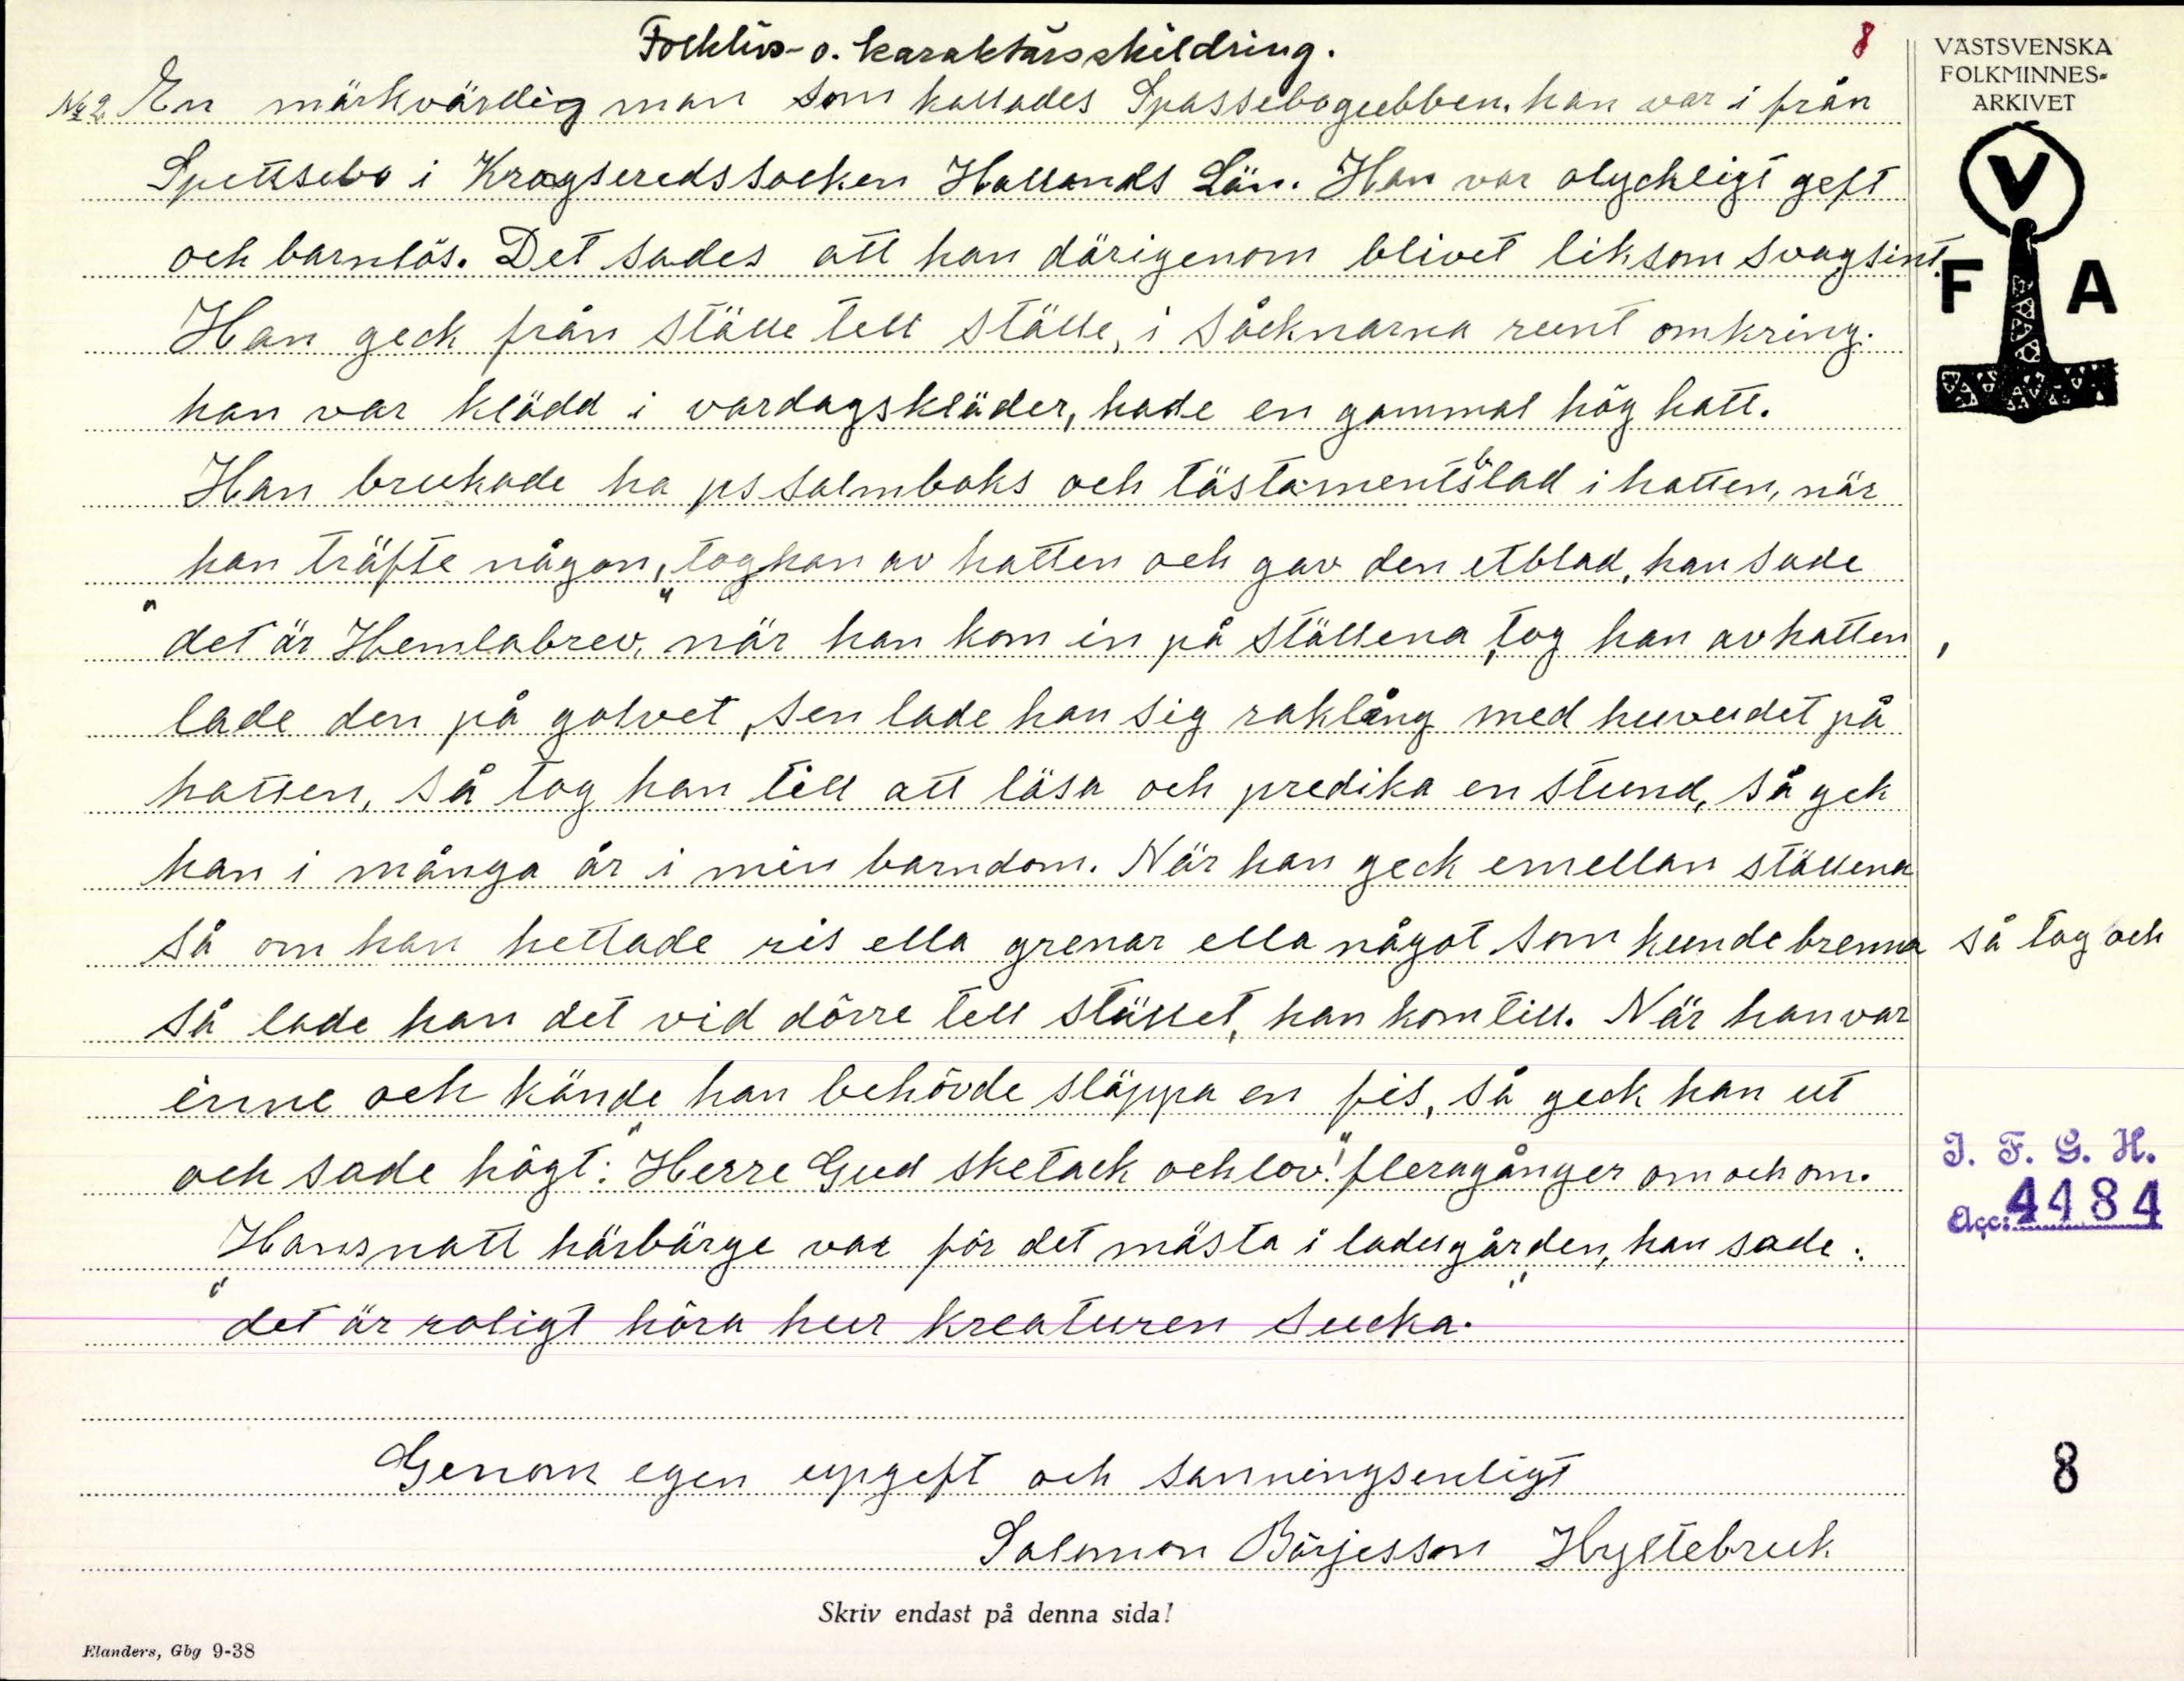 Folklivs- o. karaktärsskildring.
8
VÄSTSVENSKA
FOLKMINNES-
ARKIVET
V
F A
No 2 En märkvärdig man som kallades Spassebogubben. han var i från
Spettsebo i Krogseredssocken Hallands Län. Han var olyckligt geft
och barnlös. Det sades att han därigenom blivet liksom svagsint.
Han geck från ställe tell ställe, i såcknarna runt omkring.
han var klädd i vardagskläder, hade en gammal hög hatt.
Han brukade ha pssalmboks och tästamentsblad i hatten, när
han träfte någon, tog han av hatten och gav den etblad, han sade
"det är Hemlabrev," när han kom in på ställena, tog han av hatten,
lade den på golvet, sen lade han sig raklång med huvudet på
hatten, så tog han till att läsa och predika en stund, så gek
han i många år i min barndom. När han geck emellan ställena
så om han hettade ris ella grenar ella något som kunde brenna så tog och
så lade han det vid dörre tell stället, han kom till. När han var
inne och kände han behövde släppa en fis, så geck han ut
och sade högt: "Herre Gud sketack ochlov!" fleragånger om och om.
Hansnatt härbärge var för det mästa i ladugården, han sade:
"det är roligt höra hur kreaturen sucka."
I. F. G. H.
Acc: 4484
Genom egen upgeft och sanningsenligt
8
Salomon Börjesson Hyltebruk
Skriv endast på denna sida!
Elanders, Gbg 9-38